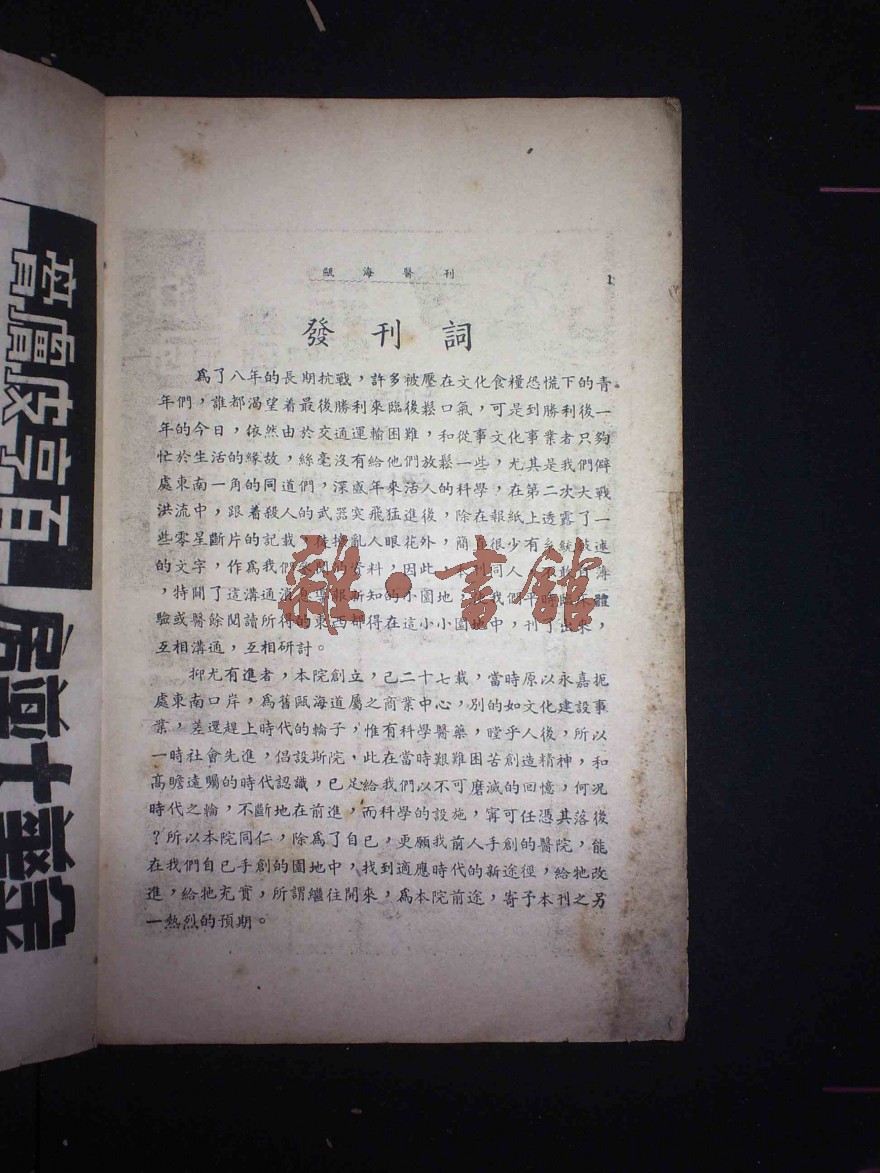 甌海醫刊
1
發刊詞
為了八年的長期抗戰，許多被壓在文化食糧恐慌下的青
年們，誰都渴望着最後勝利來臨後鬆口氣，可是到勝利後一
年的今日，依然由於交通運輸困難，和從事文化事業者只夠
忙於生活的緣故，絲毫沒有給他們放鬆一些，尤其是我們僻
處東南一角的同道們，深感年來活人的科學，在第二次大戰
洪流中，跟着殺人的武器突飛猛進後，除在報紙上透露了一
些零星斷片的記載，徒擾亂人眼花外，簡直很少有系統敍述
的文字，作為我們參閱的資料，因此，本刊同人
特闢了這溝通消息導報新知的小園地，我們平時臨床體
驗或醫餘閱讀所得的東西都得在這小小園地中，刊了出來，
互相溝通，互相研討。
抑尤有進者，本院創立，已二十七載，當時原以永嘉扼
處東南口岸，為舊甌海道屬之商業中心，別的如文化建設事
業，差還趕上時代的輪子，惟有科學醫藥，瞠乎人後，所以
一時社會先進，倡設斯院，此在當時艱難困苦創造精神，和
高瞻遠矚的時代認識，已足給我們以不可磨滅的回憶，何況
時代之輪，不斷地在前進，而科學的設施，寗可任憑其落後
？所以本院同仁，除為了自己，更願我前人手創的醫院，能
在我們自己手創的園地中，找到適應時代的新途徑，給牠改
進，給牠充實，所謂繼往開來，為本院前途，寄予本刊之另
一熱烈的預期。
雜·書館
百亨皮膚膏